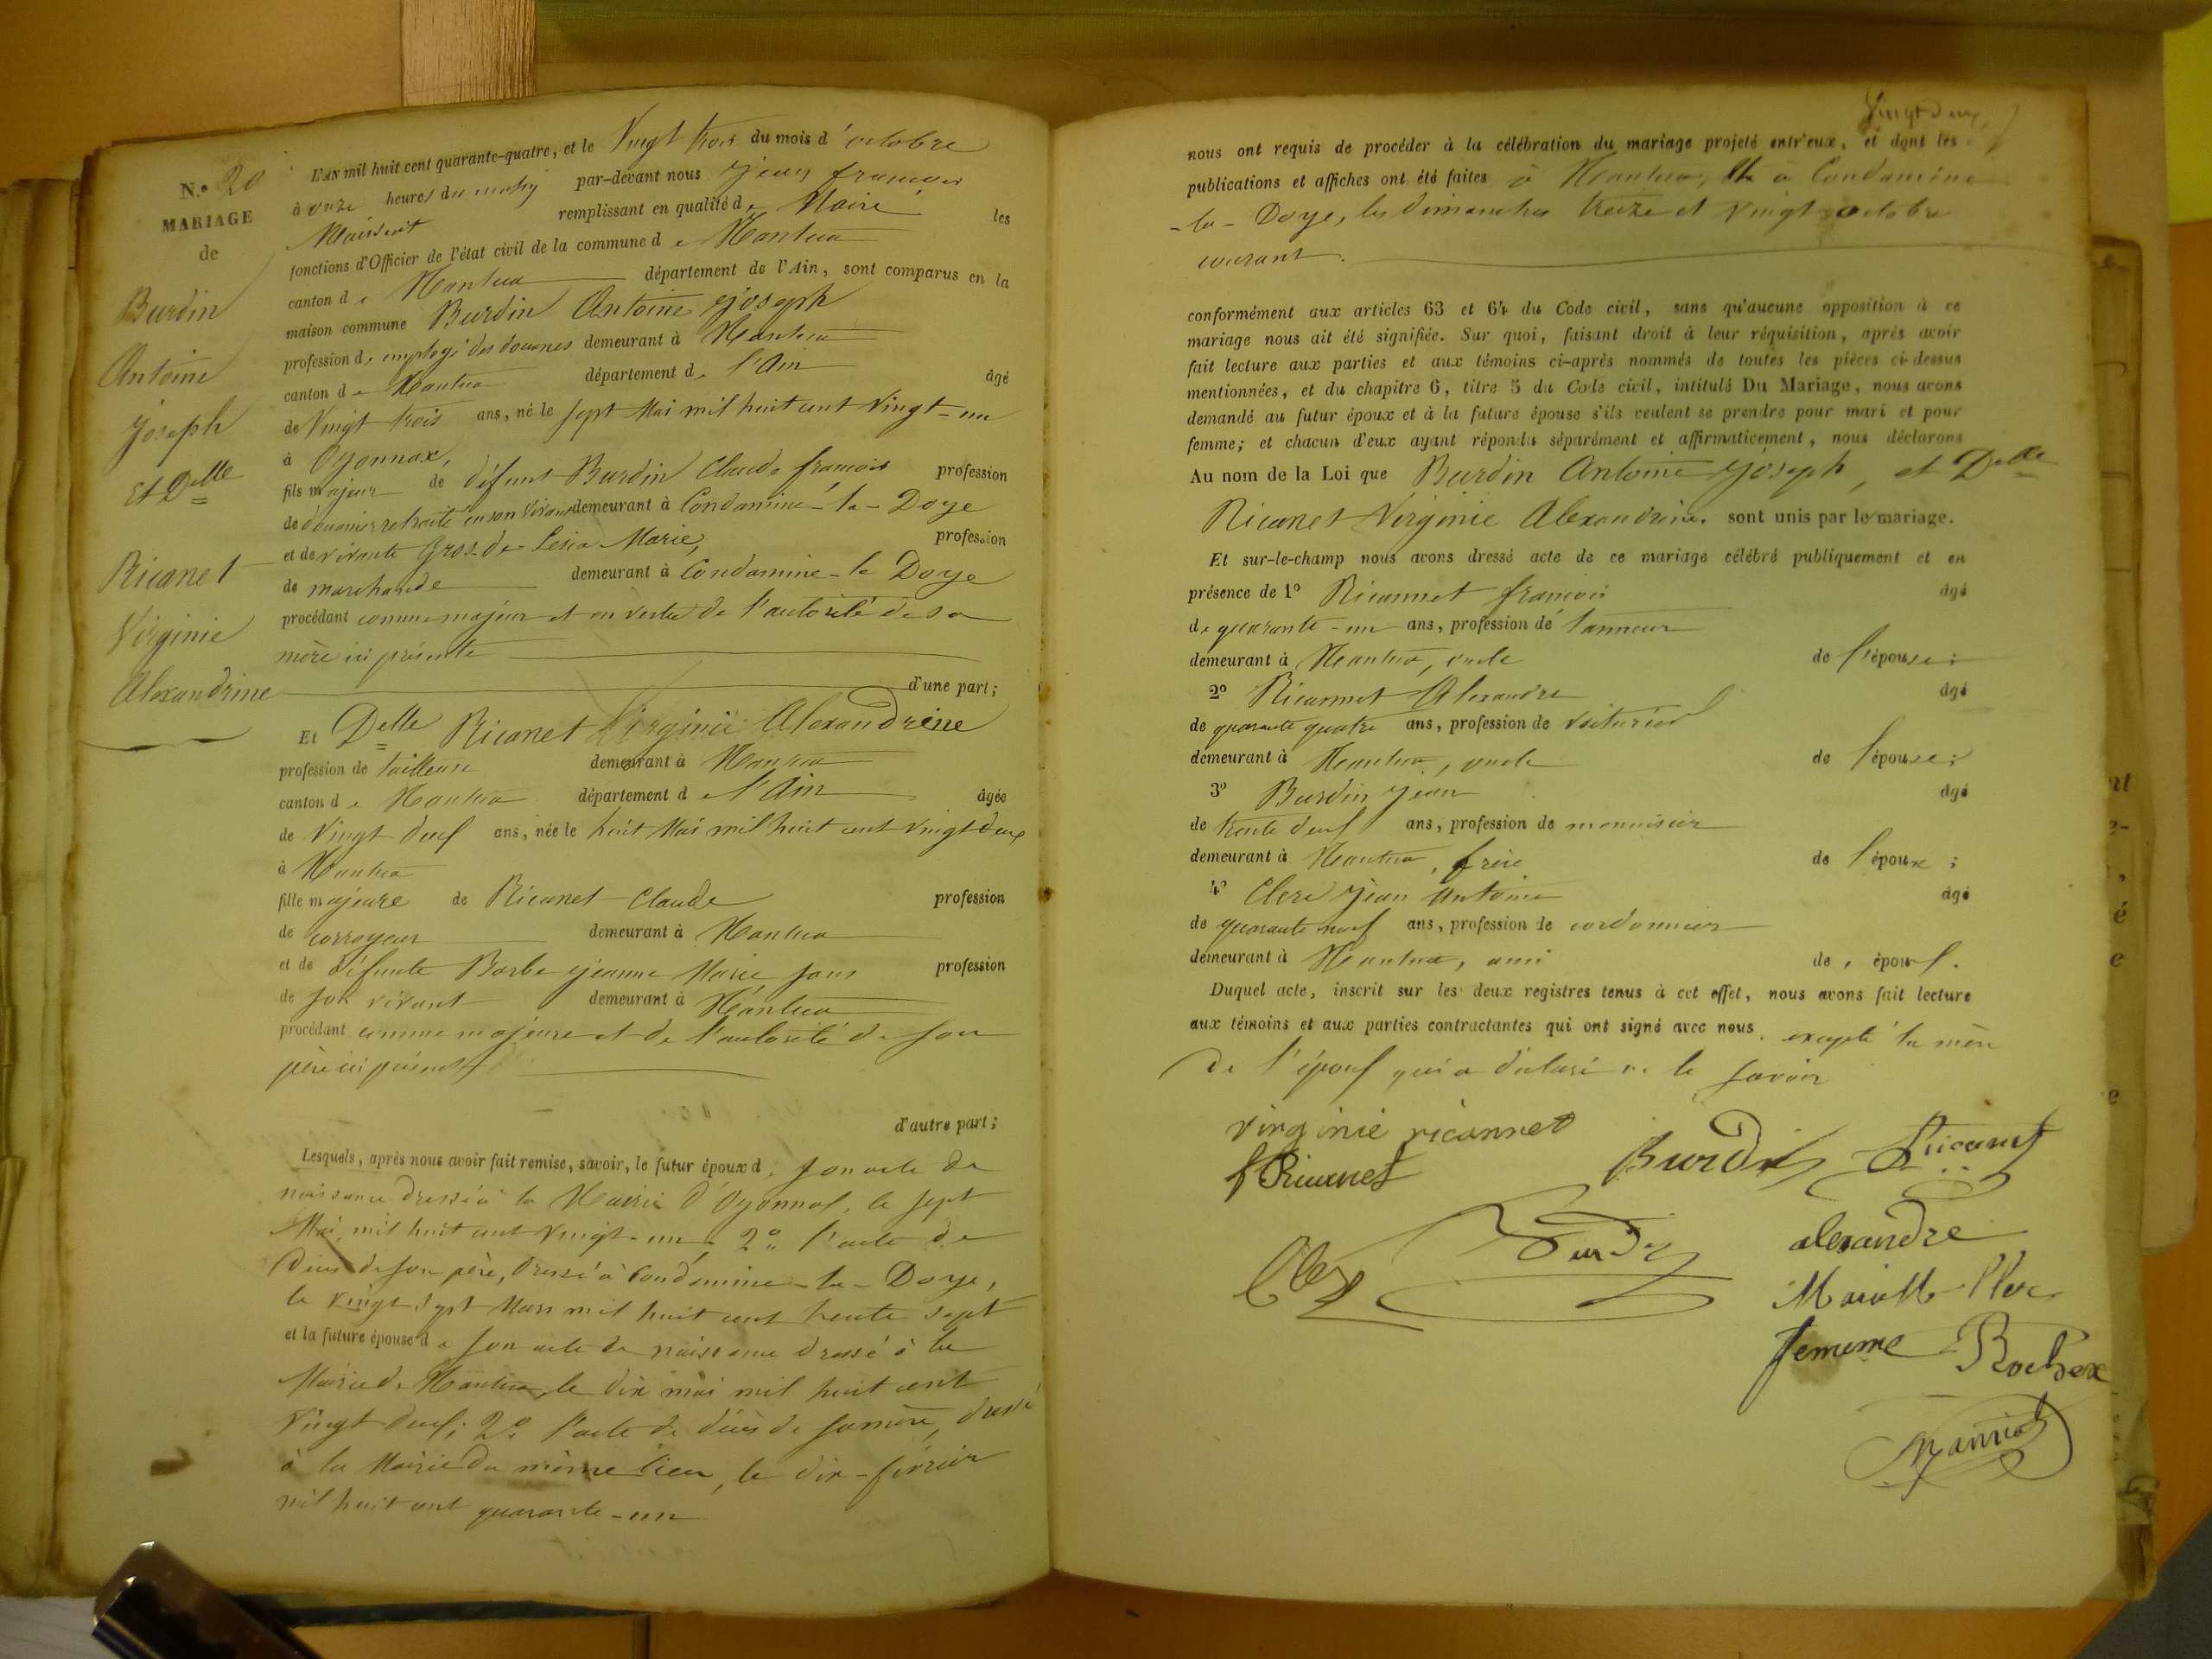 N.o 20
MARIAGE
de
Burdin
Antoine
Joseph
Et Delle
Ricanet
Virginie
Alexandrine
L'AN mil huit cent quarante-quatre, et le Vingt trois du mois d'octobre
à onze heures du matin par-devant nous Jean françois
remplissant en qualité de Maire les
fonctions d'Officier de l'état civil de la commune de Nantua
canton de Nantua département de l'Ain, sont comparus en la
maison commune Burdin Antoine Joseph
profession d'employé des douanes demeurant à Nantua
canton de Nantua département de l'Ain âgé
de Vingt trois ans, né le sept Mai mil huit cent Vingt-un
à Oyonnax,
fils majeur de défunt Burdin Claude françois profession
de douanier retraité en son vivant demeurant à Condamine-la-Doye
et de vivante Gros-de Marie, profession
de marchande demeurant à Condamine-la Doye
procédant comme majeur et en vertu de l'autorité de sa
mère ici présente
d'une part;
Et Delle Ricanet Virginie Alexandrine
profession de tailleuse demeurant à Nantua
canton de Nantua département de l'Ain âgée
de Vingt deux ans, née le huit Mai mil huit cent vingt deux
à Nantua
fille majeure de Ricanet Claude profession
de corroyeur demeurant à Nantua
et de défunte Barbe Jeanne Marie sans profession
de son vivant demeurant à Nantua
procédant comme majeure et de l'autorité de son
père ici présent
d'autre part;
Lesquels, après nous avoir fait remise, savoir, le futur époux de son acte de
naissance dressé à la Mairie d'Oyonnax, le sept
Mai, mil huit cent vingt-un, 2o l'acte de
décès de son père, dressé à Condamine-la-Doye,
le vingt sept Mars mil huit cent trente sept
et la future épouse de son acte de naissance dressé à la
Mairie de Nantua, le dix mai mil huit cent
vingt deux; 2o l'acte de décès de sa mère, dressé
à la Mairie du même lieu, le dix-février
mil huit cent quarante-un
Vingt deux
nous ont requis de procéder à la célébration du mariage projeté entr'eux, et dont les
publications et affiches ont été faites à Nantua, à Condamine
-la-Doye, les dimanches treize et vingt octobre
courant.
conformément aux articles 63 et 64 du Code civil, sans qu'aucune opposition à ce
mariage nous ait été signifiée. Sur quoi, faisant droit à leur réquisition, après avoir
fait lecture aux parties et aux témoins ci-après nommés de toutes les pièces ci-dessus
mentionnées, et du chapitre 6, titre 5 du Code civil, intitulé Du Mariage, nous avons
demandé au futur époux et à la future épouse s'ils veulent se prendre pour mari et pour
femme; et chacun d'eux ayant répondu séparément et affirmativement, nous déclarons
Au nom de la Loi que Burdin Antoine Joseph, et Delle
Ricanet Virginie Alexandrine, sont unis par le mariage.
Et sur-le-champ nous avons dressé acte de ce mariage célébré publiquement et en
présence de 1o Ricannet françois âgé
de quarante-un ans, profession de tanneur
demeurant à Nantua, oncle de l'épouse;
2o Ricannet Alexandre âgé
de quarante quatre ans, profession de voiturier
demeurant à Nantua, oncle de l'épouse;
3o Burdin Jean âgé
de trente deux ans, profession de menuisier
demeurant à Nantua, frère de l'époux;
4o Clerc Jean Antoine âgé
de quarante neuf ans, profession de cordonnier
demeurant à Nantua, ami de l'époux.
Duquel acte, inscrit sur les deux registres tenus à cet effet, nous avons fait lecture
aux témoins et aux parties contractantes qui ont signé avec nous. excepté la mère
de l'époux qui a déclaré ne le savoir
virginie ricannet
Burdin Ricanet
f Ricanet
alexandre
Burdin
femme Rochex